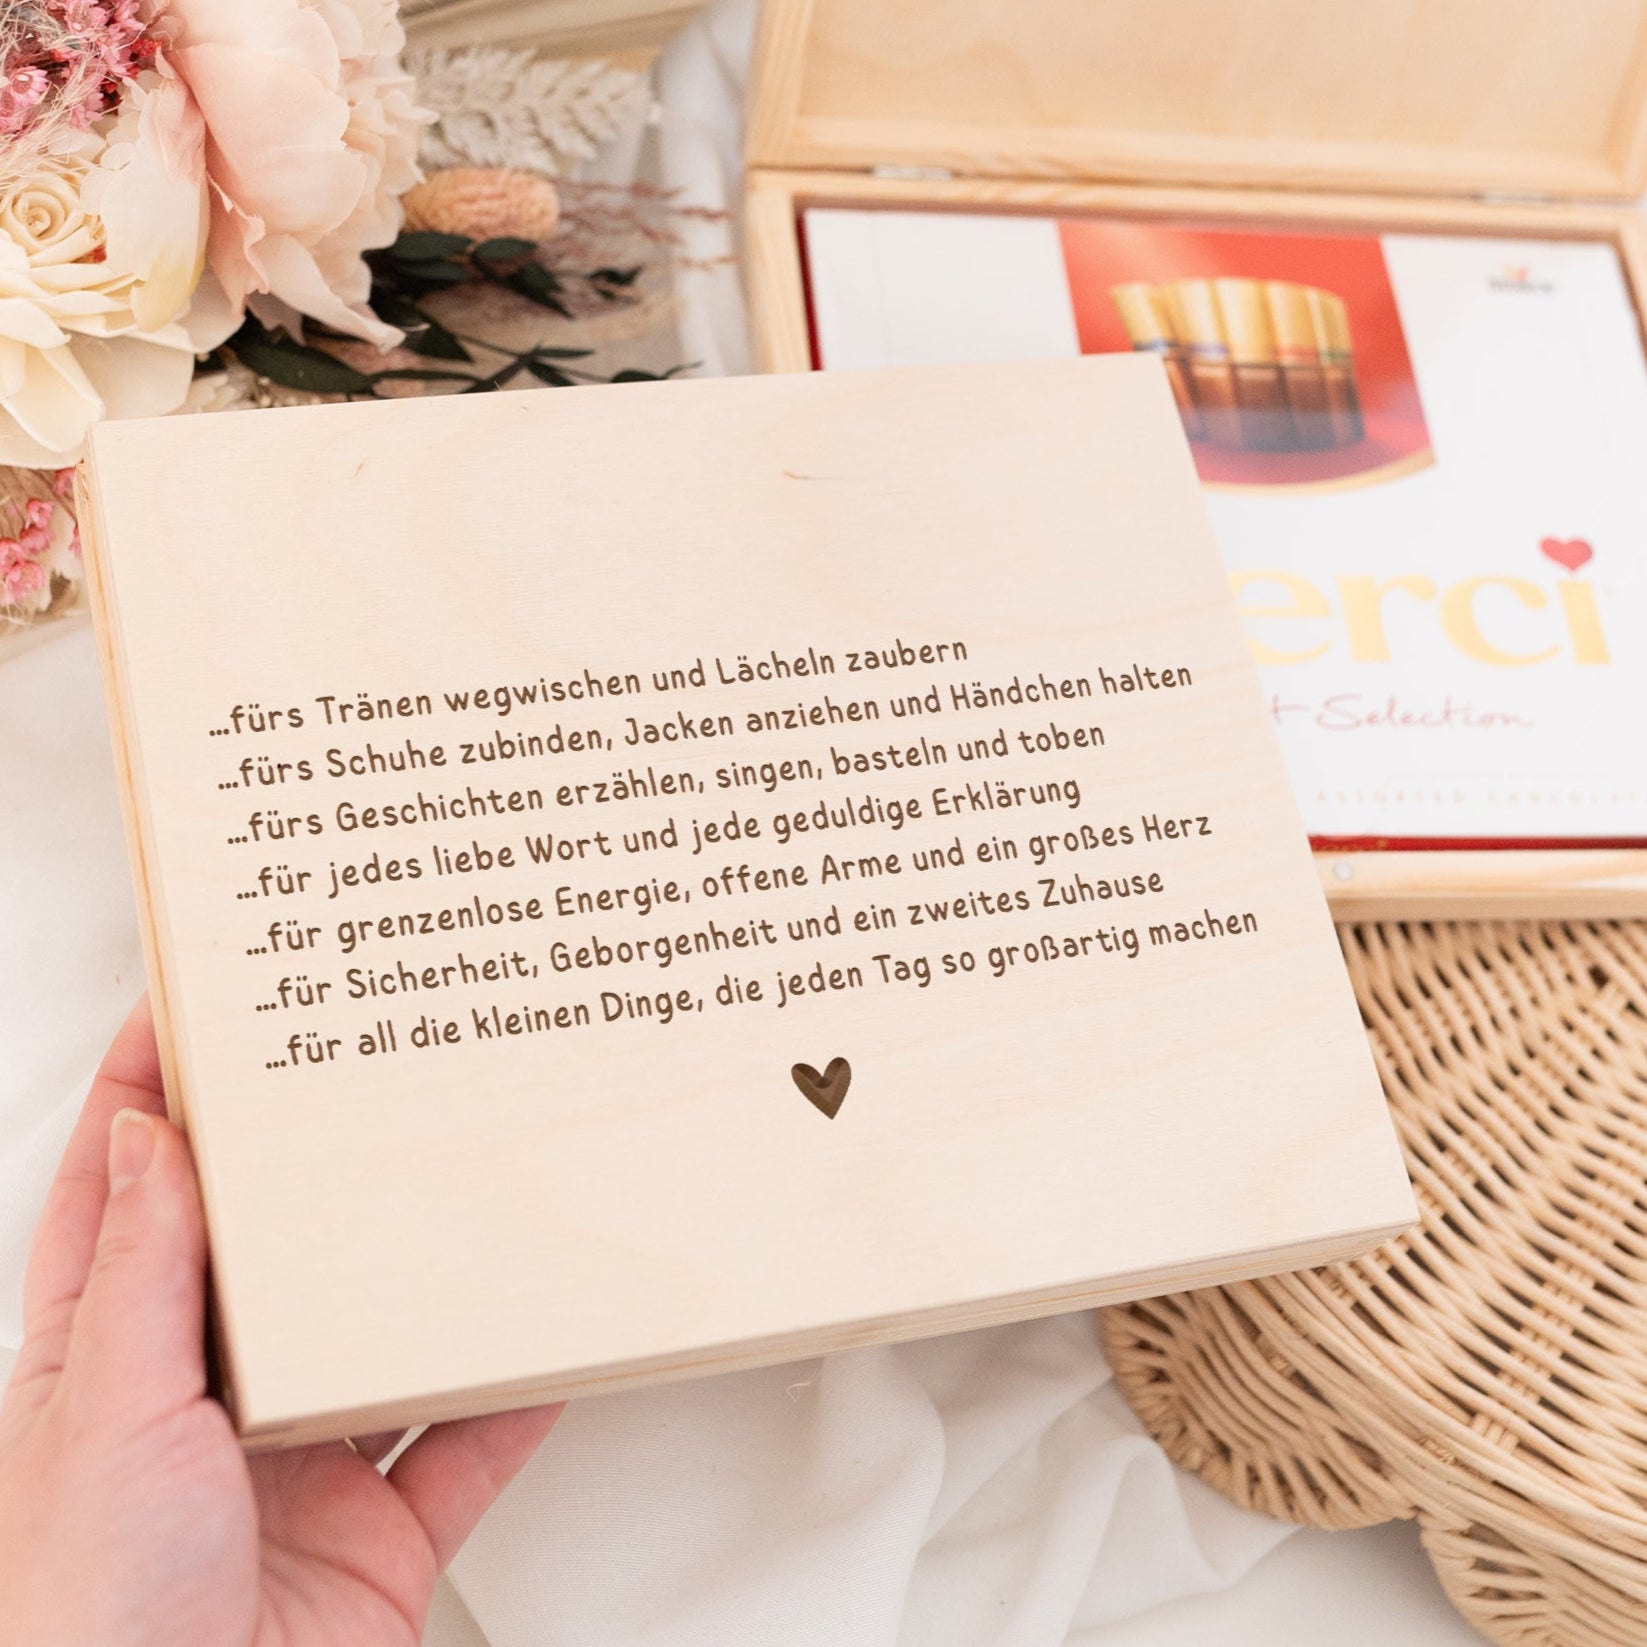 ...fürs Tränen wegwischen und Lächeln zaubern
...fürs Schuhe zubinden, Jacken anziehen und Händchen halten
...fürs Geschichten erzählen, singen, basteln und toben
...für jedes liebe Wort und jede geduldige Erklärung
...für grenzenlose Energie, offene Arme und ein großes Herz
...für Sicherheit, Geborgenheit und ein zweites Zuhause
...für all die kleinen Dinge, die jeden Tag so großartig machen
erci
t Selection
ASSORTED CHOCOLAT